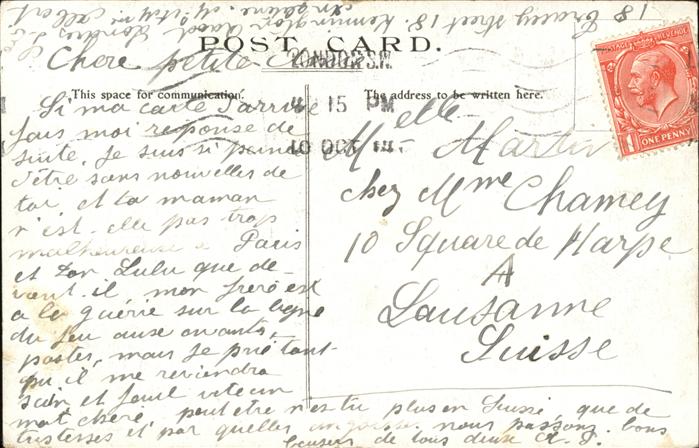 18 Tracey street 18 Kennington Road Londres S.E.
Angleterre.
POST CARD.
Chere petite
LONDON S.W.
4 15 PM
10 OCT 14
This space for communication.
The address to be written here.
ONE PENNY
Si ma carte t'arrive
fais moi reponse de
suite, Je suis si peinée
d'être sans nouvelles de
toi et ta maman
n'est-elle pas trop
malheureuse a Paris
et ton Lulu que de-
vient-il, mon frere est
a la guerre sur la ligne
du feu aux avants
postes, mais Je prie tant
qu'il me reviendra
sain et sauf
mot cheré peut etre n'es tu plus en Suisse, que de
tristesses et par quelles angoisses nous passons. bons
baisers de tous deux
Melle Martin
chez Mme Chamey
10 Square de Harpe
A
Lausanne
Suisse